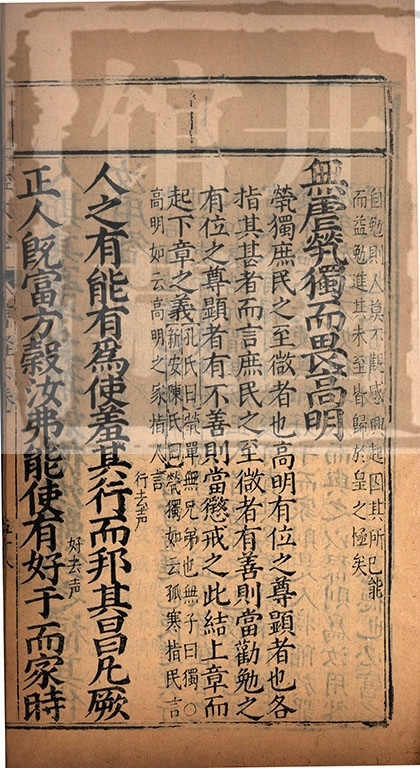 自勉則人莫不觀感興起因其所已能
而益勉進其未至皆歸於皇之極矣
無虐煢獨而畏高明
煢獨庶民之至微者也高明有位之尊顯者也各
指其甚者而言庶民之至微者有善則當勸勉之
有位之尊顯者有不善則當懲戒之此結上章而
起下章之義
孔氏曰煢單無兄弟也無子曰獨〇
新安陳氏曰煢獨如云孤寒指民言
高明如云高明之家指人言
人之有能有為使羞其行而邦其昌凡厥
行去声
正人既富方穀汝弗能使有好于而家時
好去声